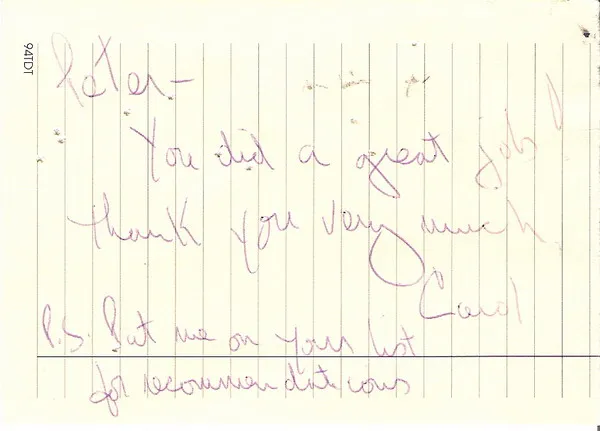 94TDT
Peter-
You did a great job!
Thank you very much,
Carol
P.S. Put me on your list
for recommendations